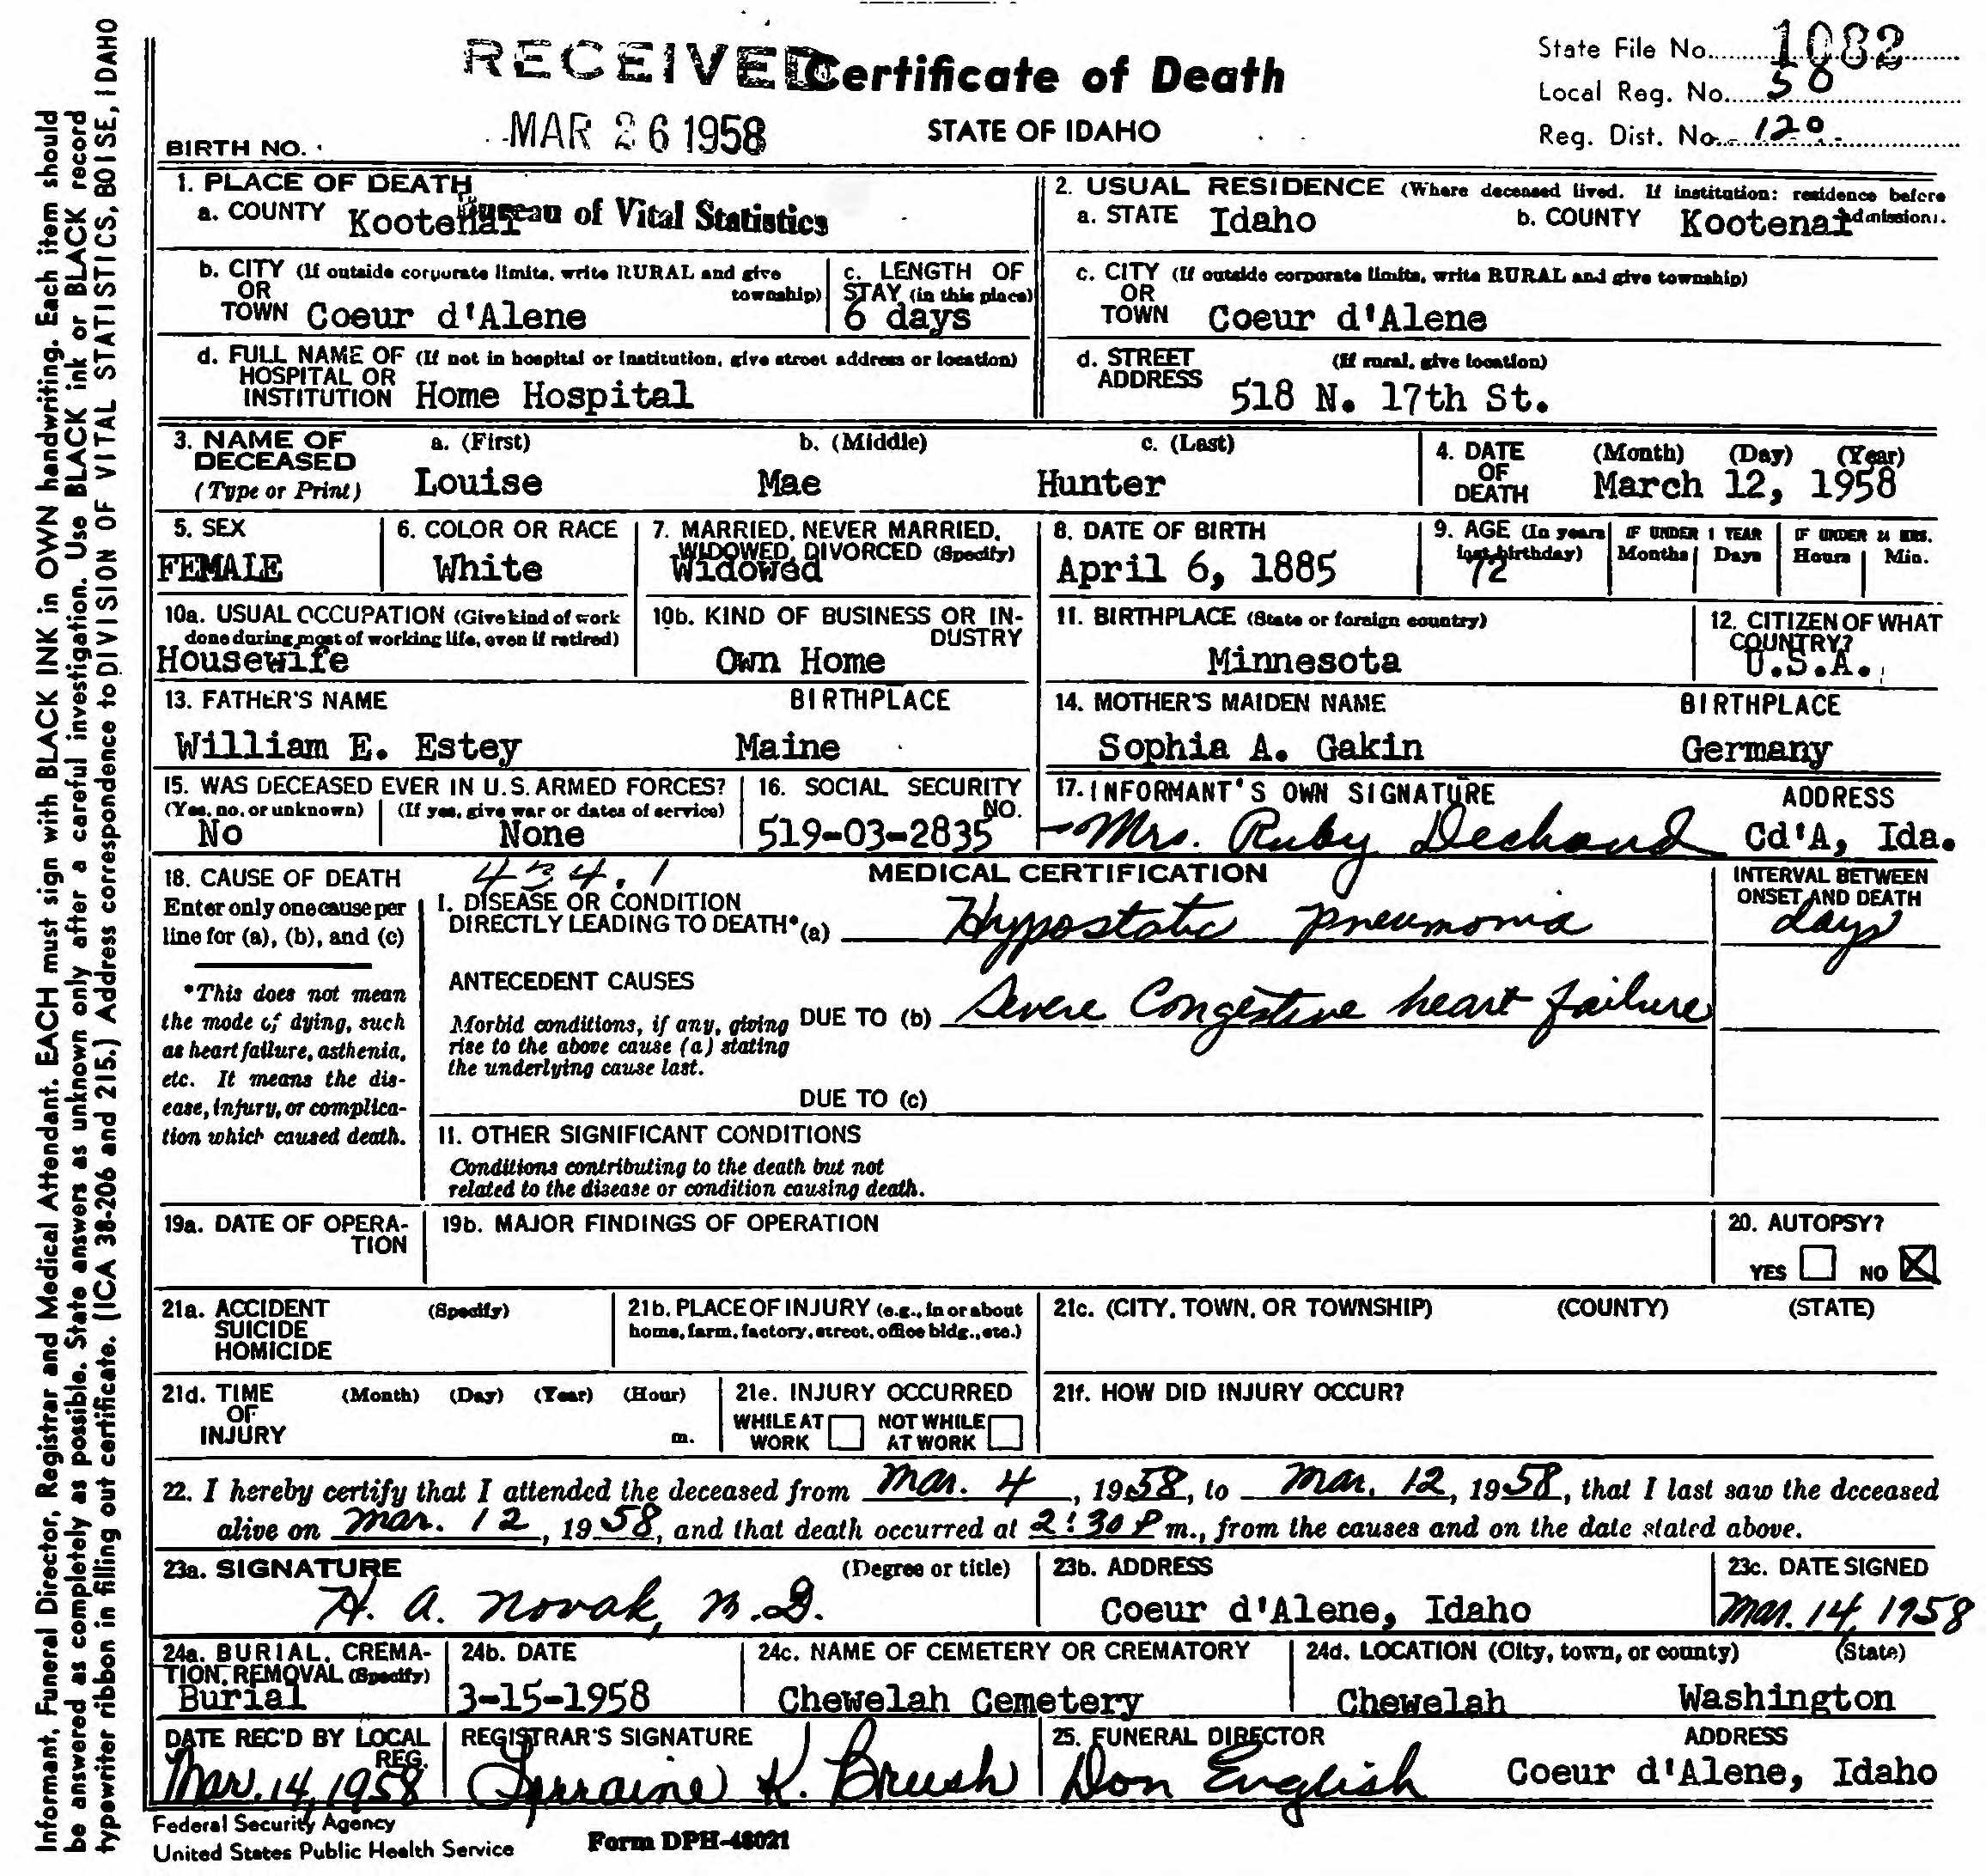 RECEIVED Certificate of Death
MAR 26 1958
STATE OF IDAHO
State File No. 1082
Local Reg. No. 58
Reg. Dist. No. 120
BIRTH NO.
1. PLACE OF DEATH
a. COUNTY Kootenai
Bureau of Vital Statistics
2. USUAL RESIDENCE (Where deceased lived. If institution: residence before admission).
a. STATE Idaho b. COUNTY Kootenai
b. CITY (If outside corporate limits, write RURAL and give township)
OR
TOWN Coeur d'Alene
c. LENGTH OF
STAY (in this place)
6 days
c. CITY (If outside corporate limits, write RURAL and give township)
OR
TOWN Coeur d'Alene
d. FULL NAME OF (If not in hospital or institution, give street address or location)
HOSPITAL OR
INSTITUTION Home Hospital
d. STREET (If rural, give location)
ADDRESS 518 N. 17th St.
3. NAME OF
DECEASED
(Type or Print)
a. (First) b. (Middle) c. (Last)
Louise Mae Hunter
4. DATE (Month) (Day) (Year)
OF
DEATH March 12, 1958
5. SEX
FEMALE
6. COLOR OR RACE
White
7. MARRIED, NEVER MARRIED,
WIDOWED, DIVORCED (Specify)
Widowed
8. DATE OF BIRTH
April 6, 1885
9. AGE (In years
last birthday)
72
IF UNDER 1 YEAR
Months Days
IF UNDER 24 HRS.
Hours Min.
10a. USUAL OCCUPATION (Give kind of work
done during most of working life, even if retired)
Housewife
10b. KIND OF BUSINESS OR IN-
DUSTRY
Own Home
11. BIRTHPLACE (State or foreign country)
Minnesota
12. CITIZEN OF WHAT
COUNTRY?
U.S.A.
13. FATHER'S NAME BIRTHPLACE
William E. Estey Maine
14. MOTHER'S MAIDEN NAME BIRTHPLACE
Sophia A. Gakin Germany
15. WAS DECEASED EVER IN U.S. ARMED FORCES?
(Yes, no, or unknown) (If yes, give war or dates of service)
No None
16. SOCIAL SECURITY
NO.
519-03-2835
17. INFORMANT'S OWN SIGNATURE ADDRESS
Mrs. Ruby Dechand Cd'A, Ida.
18. CAUSE OF DEATH
Enter only one cause per
line for (a), (b), and (c)
*This does not mean
the mode of dying, such
as heart failure, asthenia,
etc. It means the dis-
ease, injury, or complica-
tion which caused death.
434.1
MEDICAL CERTIFICATION
I. DISEASE OR CONDITION
DIRECTLY LEADING TO DEATH* (a) Hypostatic pneumonia
INTERVAL BETWEEN
ONSET AND DEATH
days
ANTECEDENT CAUSES
Morbid conditions, if any, giving
rise to the above cause (a) stating
the underlying cause last.
DUE TO (b) Severe Congestive heart failure
DUE TO (c)
II. OTHER SIGNIFICANT CONDITIONS
Conditions contributing to the death but not
related to the disease or condition causing death.
19a. DATE OF OPERA-
TION
19b. MAJOR FINDINGS OF OPERATION
20. AUTOPSY?
YES NO
21a. ACCIDENT (Specify)
SUICIDE
HOMICIDE
21b. PLACE OF INJURY (e.g., in or about
home, farm, factory, street, office bldg., etc.)
21c. (CITY, TOWN, OR TOWNSHIP) (COUNTY) (STATE)
21d. TIME (Month) (Day) (Year) (Hour)
OF
INJURY m.
21e. INJURY OCCURRED
WHILE AT WORK NOT WHILE AT WORK
21f. HOW DID INJURY OCCUR?
22. I hereby certify that I attended the deceased from Mar. 4, 1958, to Mar. 12, 1958, that I last saw the deceased
alive on Mar. 12, 1958, and that death occurred at 2:30 P m., from the causes and on the date stated above.
23a. SIGNATURE (Degree or title)
H. A. Novak, M.D.
23b. ADDRESS
Coeur d'Alene, Idaho
23c. DATE SIGNED
Mar. 14, 1958
24a. BURIAL, CREMA-
TION, REMOVAL (Specify)
Burial
24b. DATE
3-15-1958
24c. NAME OF CEMETERY OR CREMATORY
Chewelah Cemetery
24d. LOCATION (City, town, or county) (State)
Chewelah Washington
DATE REC'D BY LOCAL
REG.
Mar. 14, 1958
REGISTRAR'S SIGNATURE
Lorraine K. Brush
25. FUNERAL DIRECTOR ADDRESS
Don English Coeur d'Alene, Idaho
Federal Security Agency
United States Public Health Service
Form DPH-48021
Informant, Funeral Director, Registrar and Medical Attendant. EACH must sign with BLACK INK in OWN handwriting. Each item should
be answered as completely as possible. State answers as unknown only after a careful investigation. Use BLACK ink or BLACK record
typewriter ribbon in filling out certificate. (ICA 38-206 and 215.) Address correspondence to DIVISION OF VITAL STATISTICS, BOISE, IDAHO